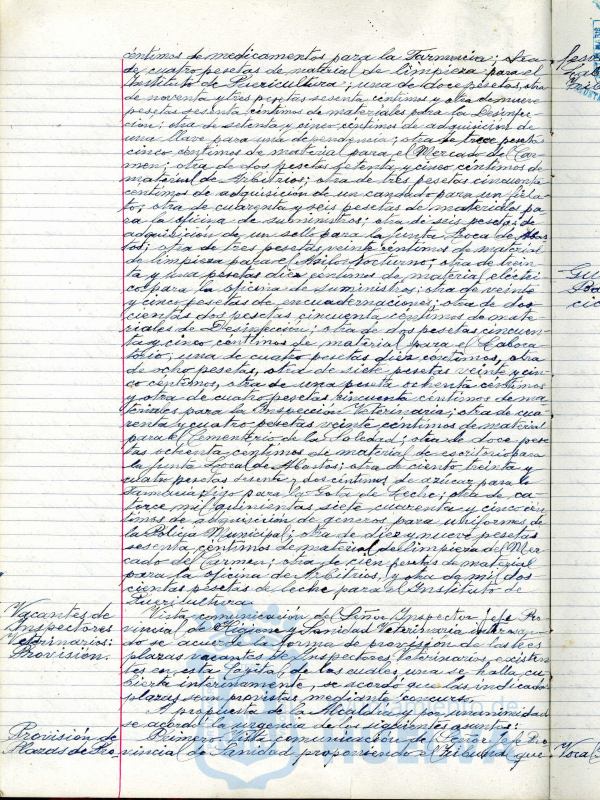 céntimos de medicamentos para la Farmacia; otra
de cuatro pesetas de material de limpieza para el
Instituto de Puericultura; una de doce pesetas, otra
de noventa y tres pesetas sesenta céntimos y otra de nueve
pesetas sesenta céntimos de materiales para la Desinfec-
ción; otra de setenta y cinco céntimos de adquisición de
una llave para una dependencia; otra de trece pesetas
cinco céntimos de material para el Mercado del Car-
men; otra de dos pesetas setenta y cinco céntimos de
material de Arbitrios; otra de tres pesetas cincuenta
céntimos de adquisición de un candado para un
otra de cuarenta y seis pesetas de materiales pa-
ra la oficina de suministros; otra de seis pesetas de
adquisición de un sello para la Junta Local de Abas-
tos; otra de tres pesetas veinte céntimos de material
de limpieza para el Asilo Nocturno; otra de trein-
ta y una pesetas diez céntimos de material eléctri-
co para la oficina de suministros; otra de veinte
y cinco pesetas de encuadernaciones; otra de dos-
cientas dos pesetas cincuenta céntimos de mate-
riales de Desinfección; otra de dos pesetas cincuen-
ta y cinco céntimos de material para el Labora-
torio, una de cuatro pesetas diez céntimos, otra
de ocho pesetas, otra de siete pesetas veinte y cin-
co céntimos, otra de una peseta ochenta céntimos
y otra de cuatro pesetas cincuenta céntimos de ma-
teriales para la Inspección Veterinaria; otra de cua-
renta y cuatro pesetas veinte céntimos de material
para el Cementerio de la Soledad; otra de doce pese-
tas ochenta céntimos de material de escritorio para
la Junta Local de Abastos; otra de ciento treinta y
cuatro pesetas y dos céntimos de azúcar para la
Farmacia digo para la Gota de Leche; otra de ca-
torce mil quinientas siete cuarenta y cinco cén-
timos de adquisición de géneros para uniformes de
la Policía Municipal; otra de diez y nueve pesetas
sesenta céntimos de material de limpieza del Mer-
cado del Carmen; otra de cien pesetas de material
para la oficina de Arbitrios, y otra de mil dos-
cientas pesetas de leche para el Instituto de
Puericultura.
Vacantes de
Inspectores
Veterinarios:
Provisión.
Vista comunicación del Señor Inspector Jefe Pro-
vincial de Higiene y Sanidad Veterinaria
se acuerde la forma de provisión de las tres
plazas vacantes de Inspectores Veterinarios existen-
tes en esta Capital, de las cuales una se halla cu-
bierta interinamente, se acordó que las indicadas
plazas sean provistas mediante concurso.
A propuesta de la Alcaldía y por unanimidad
se acordó la urgencia de los siguientes asuntos:
Provisión de
Plazas de Pro-
Primero: Vista comunicación del Señor Jefe Pro-
vincial de Sanidad proponiendo el Tribunal que